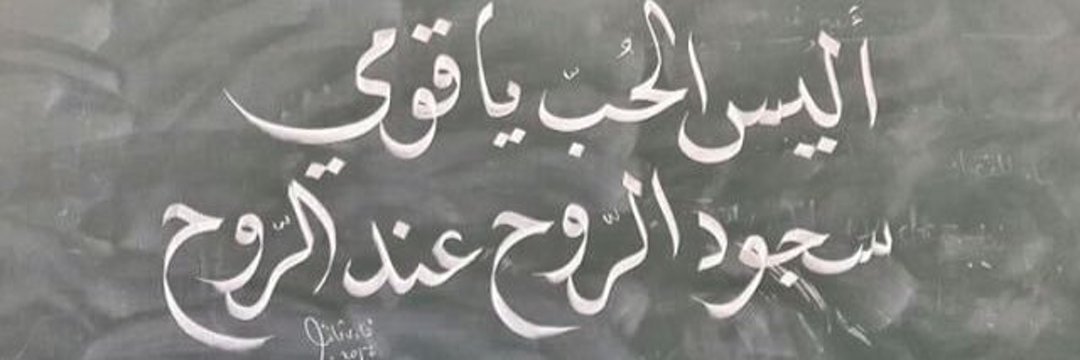 أليس الحُبّ يا قومي
سجود الرّوح عند الرّوح